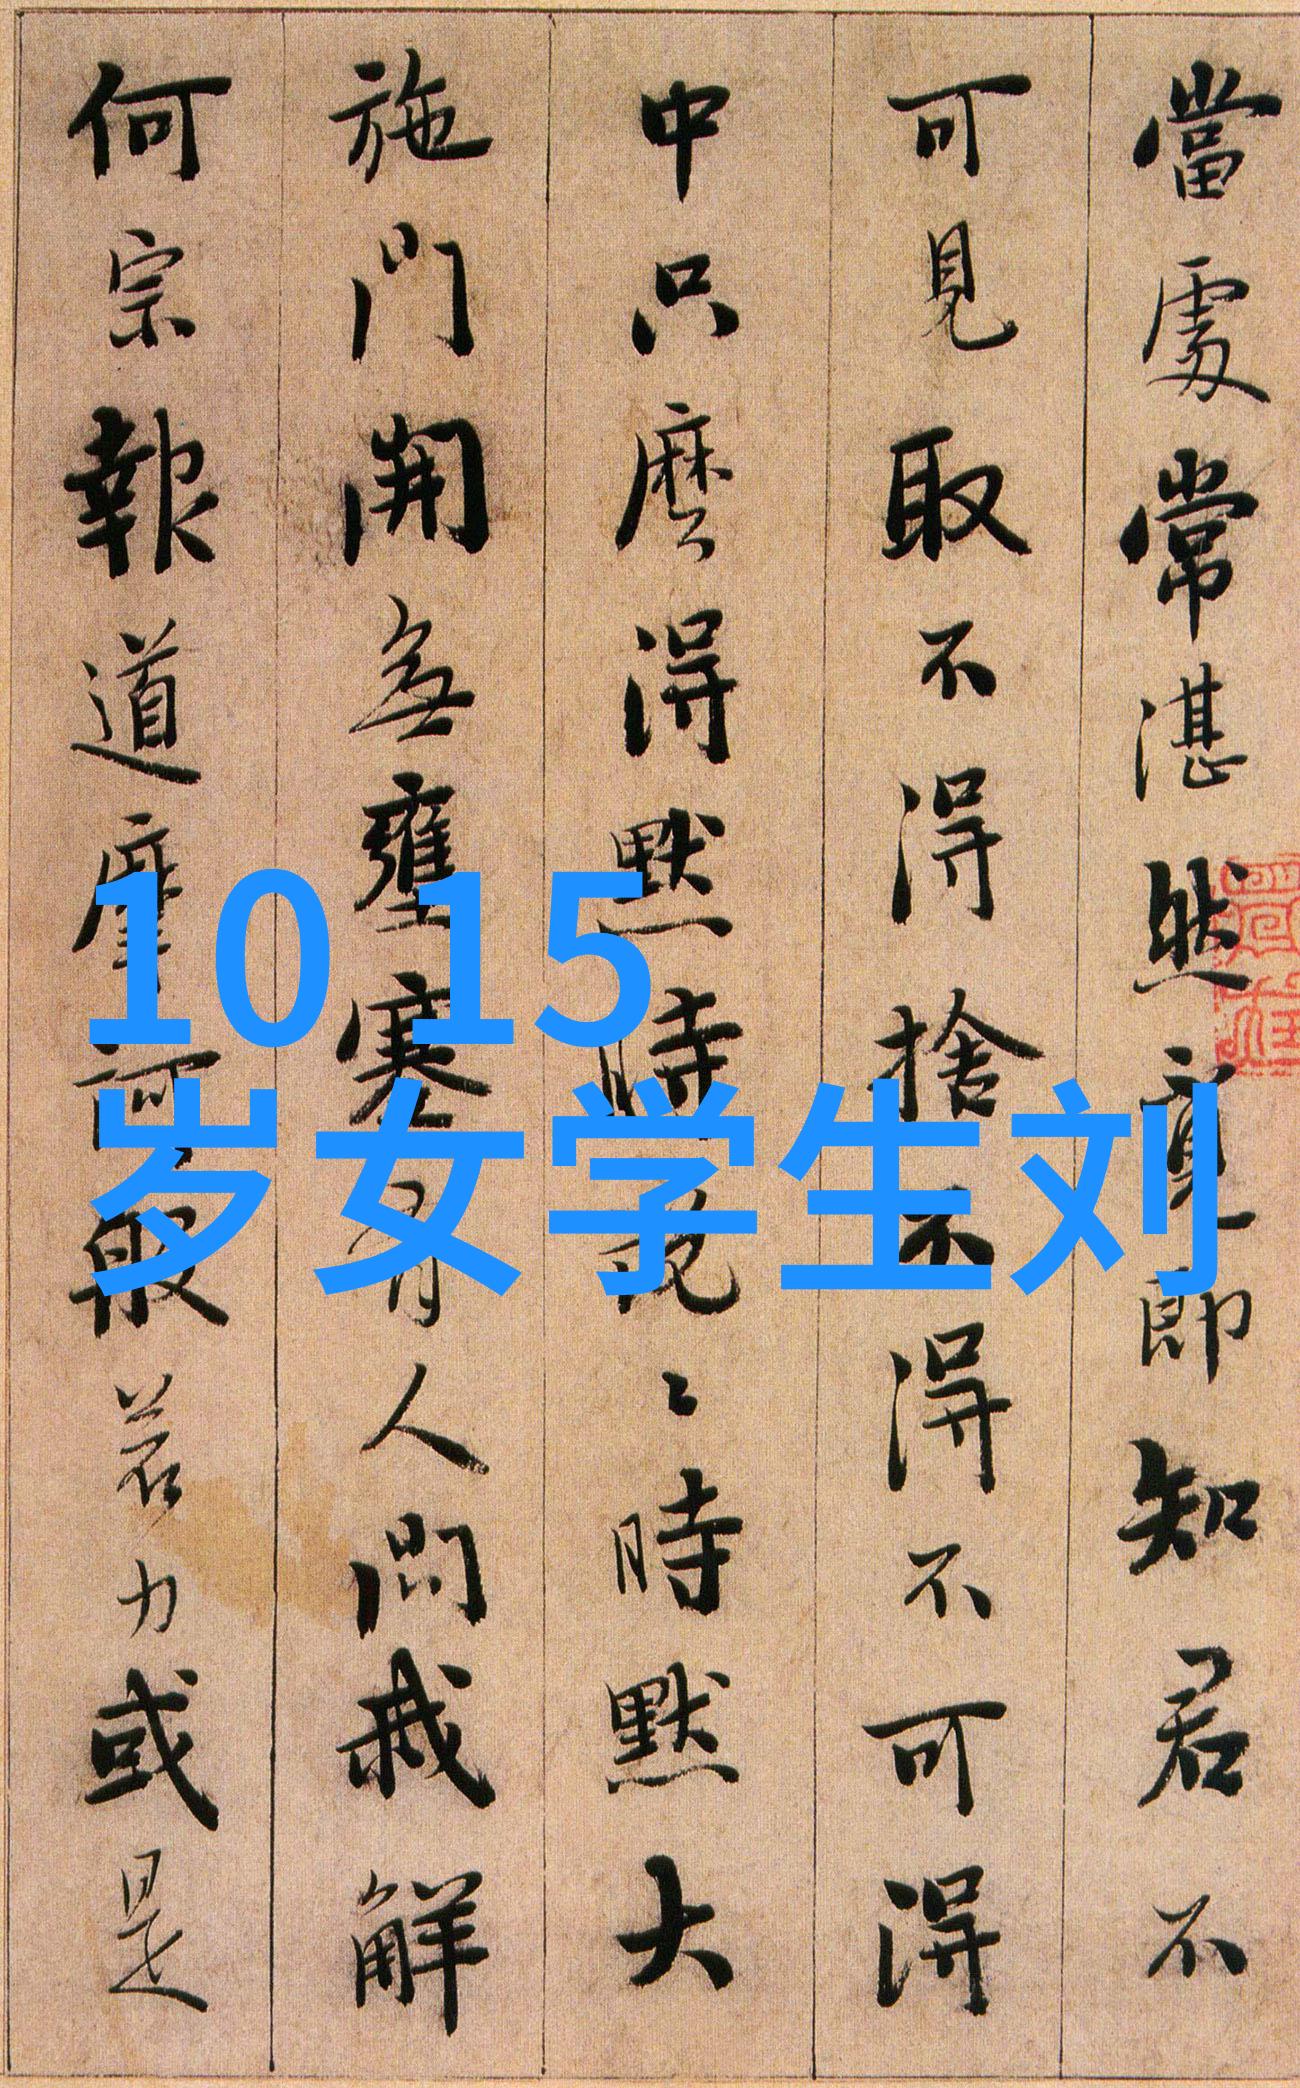 當處常湛然覓即知君不
可見取不得捨不得不可得
中只麼得默時說〻時默大
施門開無壅塞有人問我解
何宗報道摩訶般若力或是
10 15
岁女学生刘